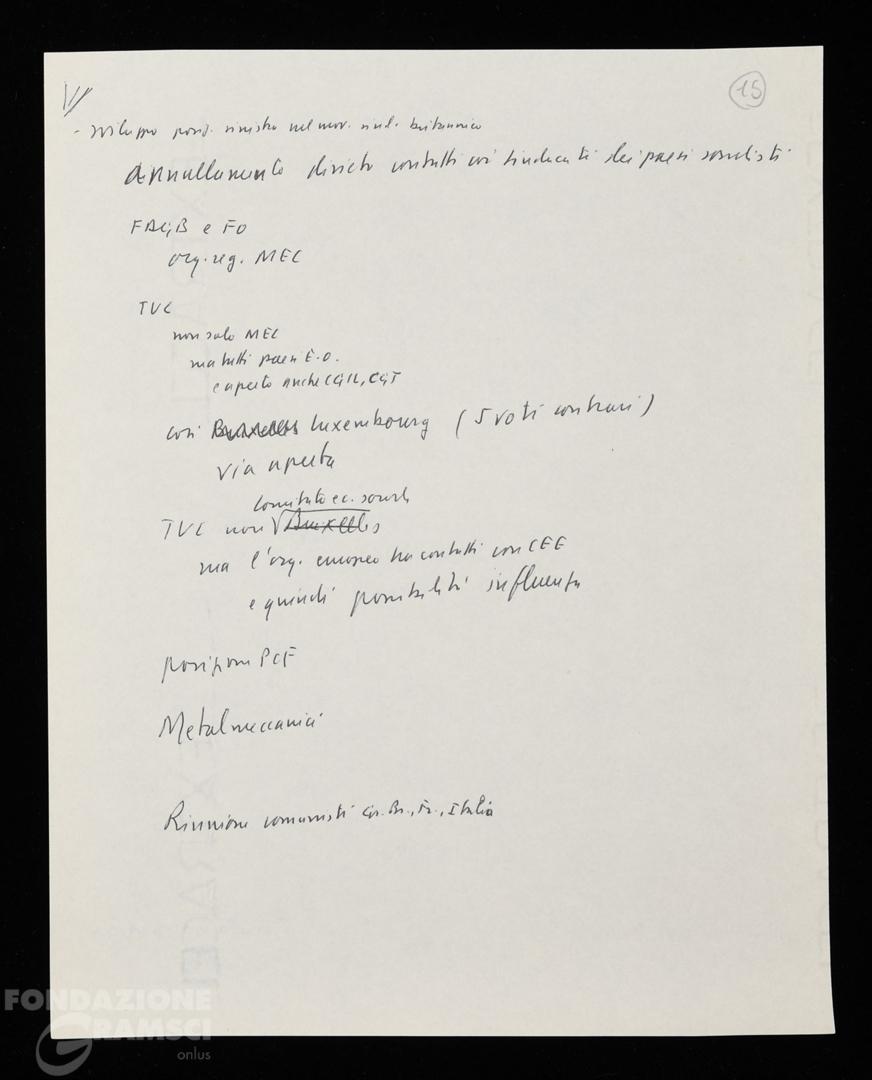 VI
15
- sviluppo posiz. sinistra nel mov. sind. britannico
Annullamento divieto contatti coi sindacati dei paesi socialisti
FDGB e FO
org. reg. MEC
TUC
non solo MEC
ma tutti paesi E.O.
e aperto anche CGIL, CGT
così Bruxelles Luxembourg (5 voti contrari)
via aperta
Comitato ec. sociale
TUC non Bruxelles
ma l'org. europeo ha contatti con CEE
e quindi possibilità influenza
posizione PCF
Metalmeccanici
Riunione comunisti Gr. Br., Fr., Italia
FONDAZIONE
GRAMSCI
onlus